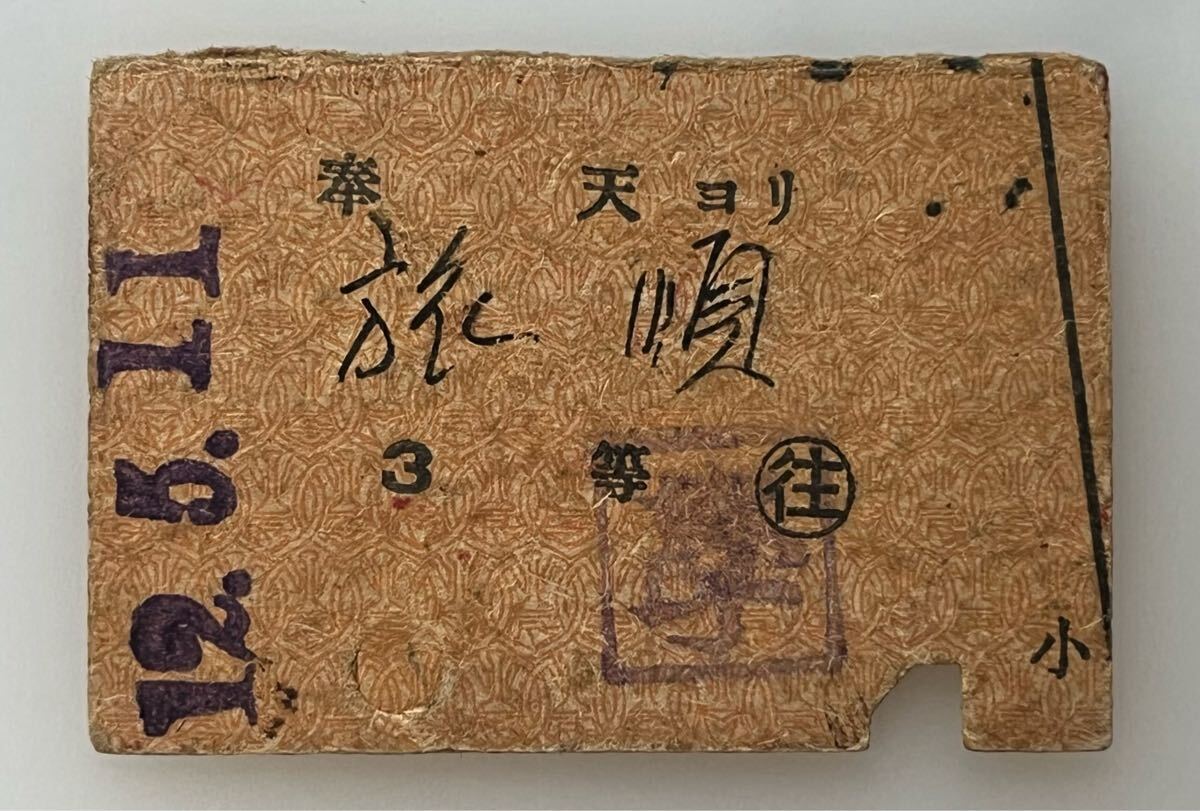 奉天ヨリ
旅順
3等 往
小
12.5.11